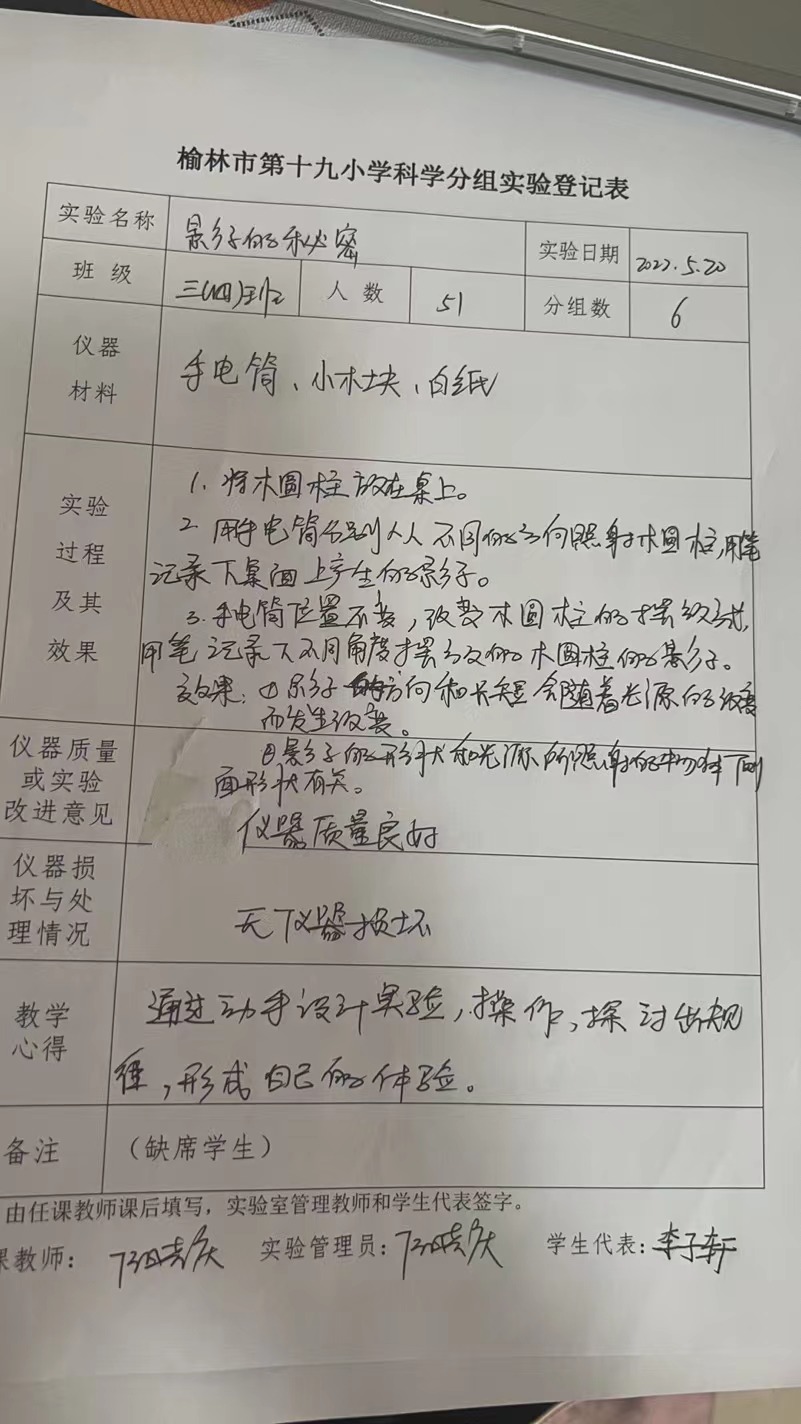 榆林市第十九小学科学分组实验登记表
实验名称 影子的秘密 实验日期 2022.5.20
班 级 三(四)班 人 数 51 分组数 6
仪器
材料
手电筒、小木块、白纸
实验
过程
及其
效果
1. 将木圆柱放在桌上。
2 用手电筒分别从不同的方向照射木圆柱,用笔
记录下桌面上产生的影子。
3. 手电筒位置不变,改变木圆柱的摆放方式,
用笔记录下不同角度摆放的木圆柱的影子。
效果:①影子的方向和长短会随着光源的改变
而发生改变。
②影子的形状和光源所照射的物体侧
面形状有关。
仪器质量
或实验
改进意见
仪器质量良好
仪器损
坏与处
理情况
无仪器损坏
教学
心得
通过动手设计实验,操作,探讨出规
律,形成自己的体验。
备注 (缺席学生)
由任课教师课后填写,实验室管理教师和学生代表签字。
课教师: 实验管理员: 学生代表:李子轩